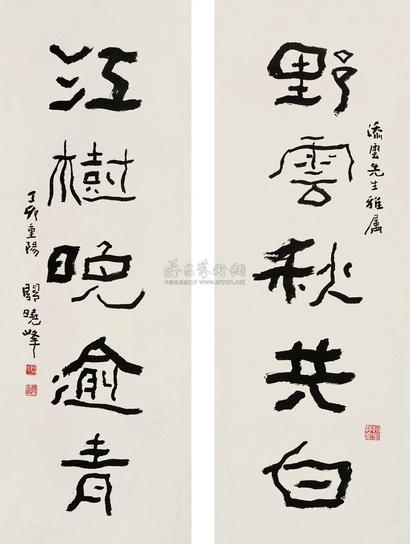 添雲先生雅屬
野雲秋共白
江樹晚逾青
丁卯重陽 關曉峰
雅昌藝術網
www.artron.net